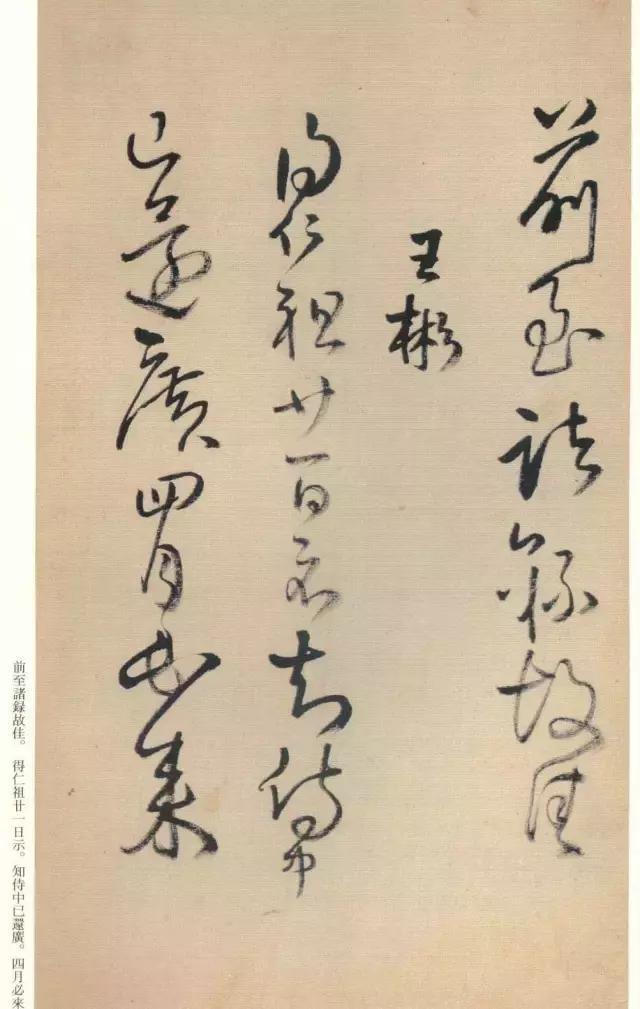 前至諸録故佳
王彬
得仁祖廿一日示知侍中
已還廣四月必来
前至諸録故佳。 得仁祖廿一日示。知侍中已還廣。四月必來